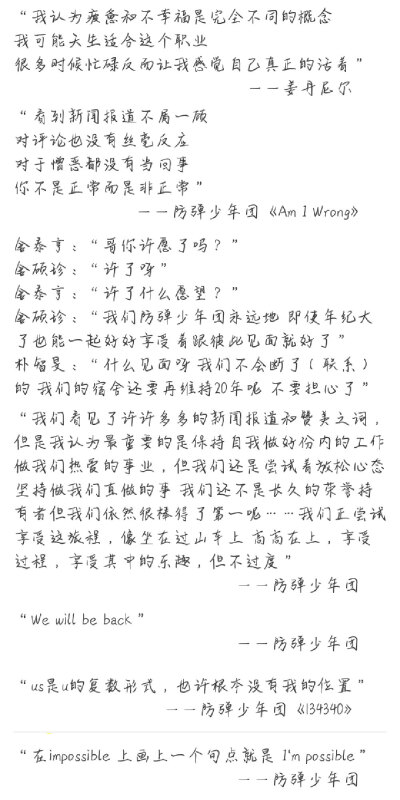 “我认为疲惫和不幸福是完全不同的概念
我可能天生适合这个职业
很多时候忙碌反而让我感觉自己真正的活着”
——姜丹尼尔
“看到新闻报道不屑一顾
对评论也没有丝毫反应
对于憎恶都没有当回事
你不是正常而是非正常”
——防弹少年团《Am I Wrong》
金泰亨：“哥你许愿了吗？”
金硕珍：“许了呀”
金泰亨：“许了什么愿望？”
金硕珍：“我们防弹少年团永远地 即使年纪大
了也能一起好好享受着跟彼此见面就好了”
朴智旻：“什么见面呀 我们不会断了（联系）
的 我们的宿舍还要再维持20年呢 不要担心了”
“我们看见了许许多多的新闻报道和赞美之词，
但是我认为最重要的是保持自我做好份内的工作
做我们热爱的事业，但我们还是尝试着放松心态
坚持做我们真做的事 我们还不是长久的荣誉持
有者但我们依然很棒得了第一呢……我们正尝试
享受这旅程，像坐在过山车上 高高在上，享受
过程，享受其中的乐趣，但不过度”
——防弹少年团
“We will be back”
——防弹少年团
“us是u的复数形式，也许根本没有我的位置”
——防弹少年团《134340》
“在impossible 上画上一个句点就是 I'm possible”
——防弹少年团